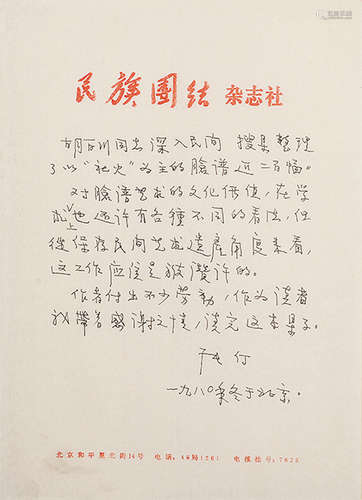 民族團结 杂志社
胡百川同志深入民间 搜集整理
了以“社火”为主的臉谱近二百幅。
对臉谱艺术的文化价值,在学
术上也还许有各種不同的看法,但
從保存民间艺术遗產角度来看,
这工作应该是被讚许的。
作者付出不少劳動,作为读者
我帶着感谢心情,读完这本集子。
于
一九八〇年冬于北京.
北京和平里北街14号 电话: 46局1261 电报挂号: 7622